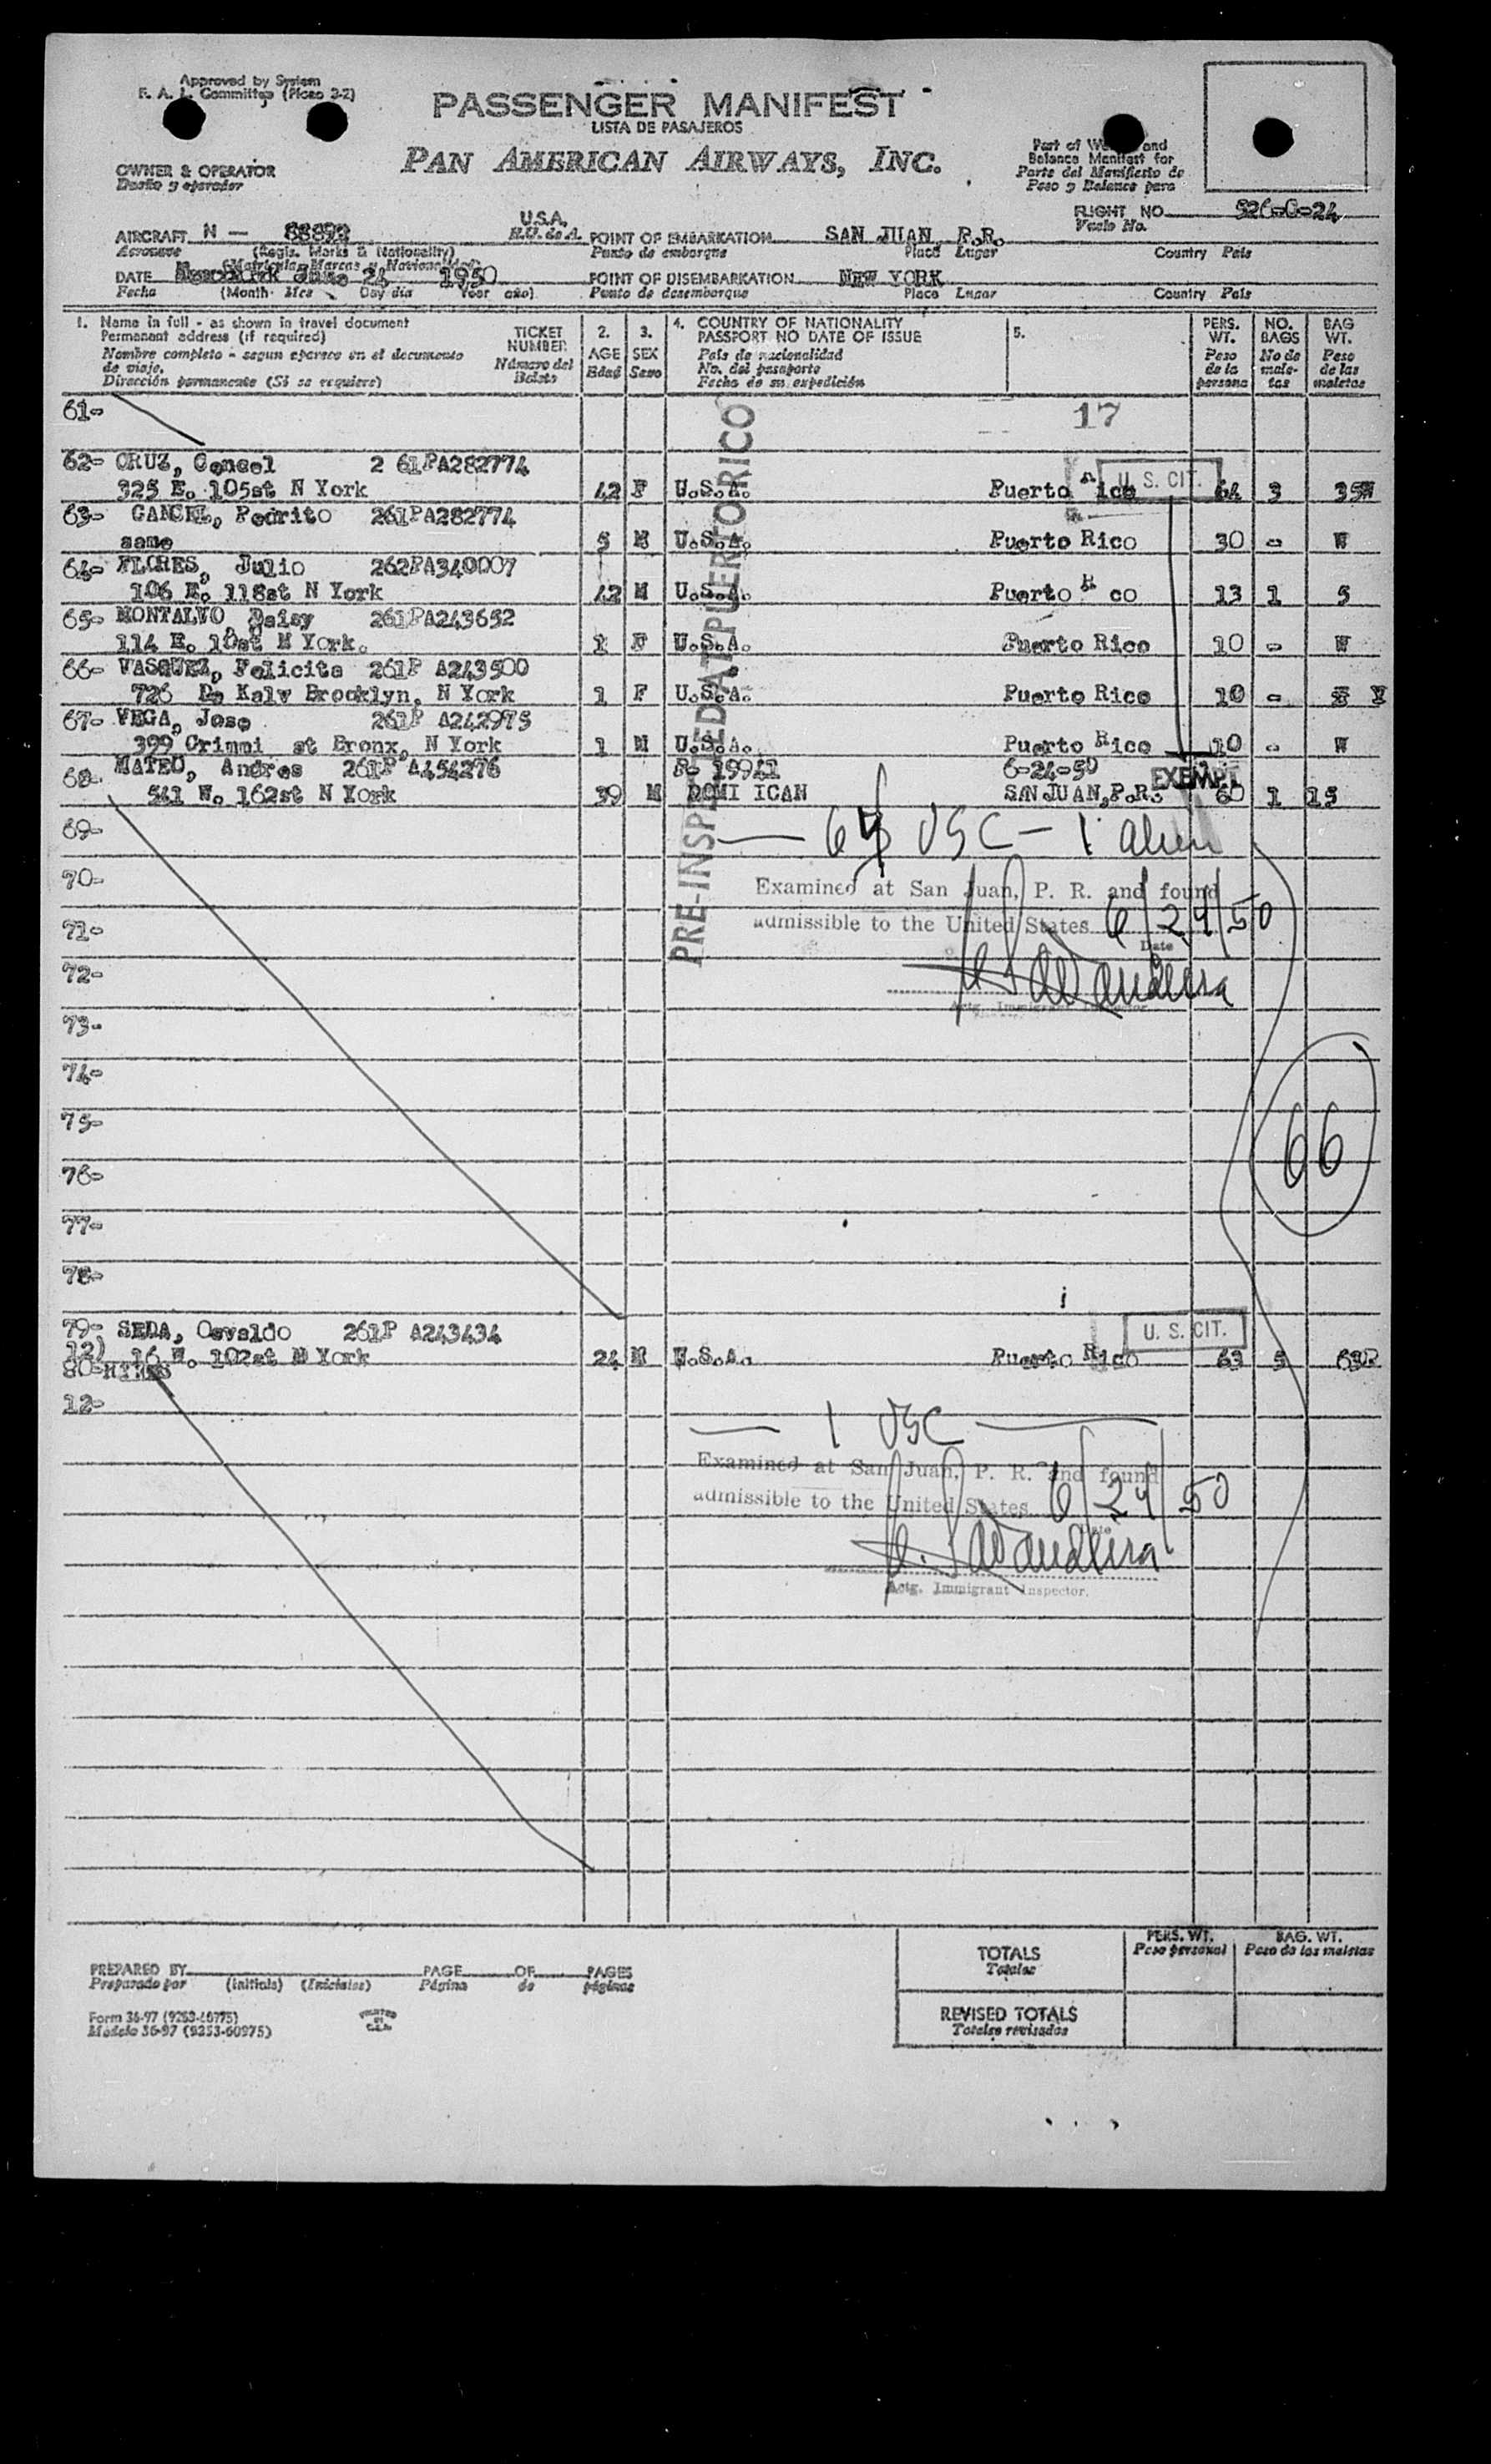 Approved by System
F. A. L. Committee (Picao 3-2)
PASSENGER MANIFEST
LISTA DE PASAJEROS
PAN AMERICAN AIRWAYS, INC.
OWNER & OPERATOR
Dueño y operador
Part of and
Balance Manifest for
Parte del Manifiesto de
Peso y Balance para
FLIGHT NO. 526-C-24
Vuelo No.
AIRCRAFT N - 88899 U.S.A. POINT OF EMBARKATION SAN JUAN P.R.
Aeronave (Regis. Marks & Nationality) E.U. de A. Punto de embarque Place Lugar Country Pais
(Matricula, Marcas y Nacionalidad)
DATE June 24 1950 POINT OF DISEMBARKATION NEW YORK
Fecha (Month Mes Day dia Year año) Punto de desembarque Place Lugar Country Pais
1. Name in full - as shown in travel document
Permanent address (if required)
Nombre completo - segun aparece en el documento
de viaje.
Dirección permanente (Si se requiere)
TICKET
NUMBER
Número del
Boleto
2.
AGE
Edad
3.
SEX
Sexo
4. COUNTRY OF NATIONALITY
PASSPORT NO DATE OF ISSUE
Pais de nacionalidad
No. del pasaporte
Fecha de su expedición
5.
PERS.
WT.
Peso
de la
persona
NO.
BAGS
No de
male-
tas
BAG
WT.
Peso
de las
maletas
PRE-INSPECTED AT PUERTO RICO
61- 17
62- CRUZ, Concel 2 61PA282774
325 E. 105st N York 42 F U.S.A. Puerto Rico U. S. CIT. 64 3 35
63- CANCEL, Pedrito 261PA282774
same 5 M U.S.A. Puerto Rico 30 - W
64- FLORES, Julio 262PA340007
106 E. 118st N York 42 M U.S.A. Puerto R co 13 1 5
65- MONTALVO, Daisy 261PA243652
114 E. 10st M York. 1 F U.S.A. Puerto Rico 10 - W
66- VASQUEZ, Felicita 261P A243500
726 De Kalv Brooklyn, N York 1 F U.S.A. Puerto Rico 10 -
67- VEGA, Jose 261P A242975
399 Crimmi st Bronx, N York 1 M U.S.A. Puerto Rico 10 - W
68- MATEO, Andres 261P A454276 R- 19941 6-24-50 EXEMPT
541 W. 162st N York 39 M DOMI ICAN SAN JUAN, P.R. 60 1 15
69- USC - 1 alien
70- Examined at San Juan, P. R. and found
71- admissible to the United States 6/24/50
Date
72-
Actg. Immigrant Inspector
73-
74-
75-
66
76-
77-
78-
79- SEDA, Osvaldo 261P A243434 U. S. CIT.
12) 16 W. 102st N York 24 M U.S.A. Puerto Rico 63 5 63
80-
12- 1 USC
Examined at San Juan, P. R. and found
admissible to the United States 6/24/50
Date
Actg. Immigrant Inspector.
PREPARED BY PAGE OF PAGES
Preparado por (Initials) (Iniciales) Página de páginas
TOTALS
Totales
PERS. WT.
Peso personal
BAG. WT.
Peso de las maletas
REVISED TOTALS
Totales revisados
Form 36-97 (9253-60975)
Modelo 36-97 (9253-60975)